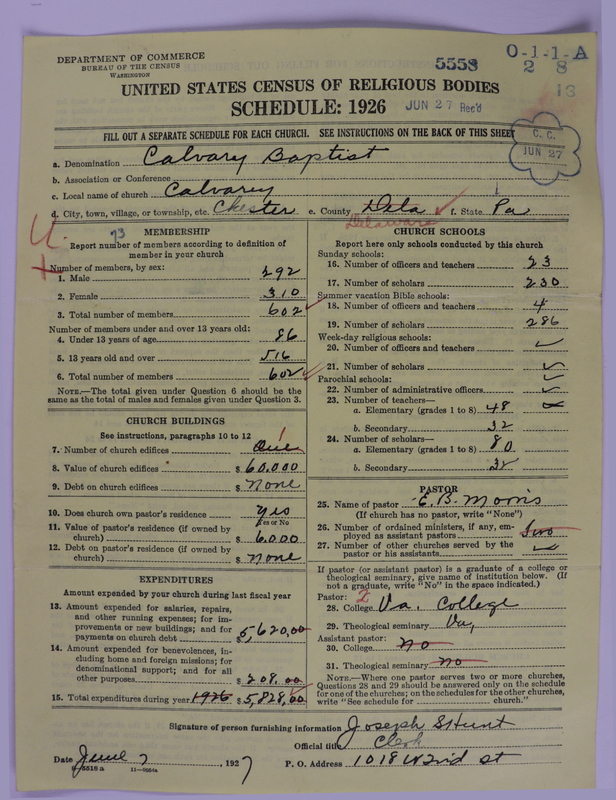 DEPARTMENT OF COMMERCE
BUREAU OF THE CENSUS
WASHINGTON
5558
O-1-1-A
2 8
13
UNITED STATES CENSUS OF RELIGIOUS BODIES
SCHEDULE: 1926
JUN 27 Rec'd
FILL OUT A SEPARATE SCHEDULE FOR EACH CHURCH. SEE INSTRUCTIONS ON THE BACK OF THIS SHEET
C. C.
JUN 27
a. Denomination Calvary Baptist
b. Association or Conference
c. Local name of church Calvarey
d. City, town, village, or township, etc. Chester e. County Dela f. State Pa
Delaware
MEMBERSHIP
Report number of members according to definition of
member in your church
Number of members, by sex:
1. Male 292
2. Female 310
3. Total number of members 602
Number of members under and over 13 years old:
4. Under 13 years of age 86
5. 13 years old and over 516
6. Total number of members 602
NOTE.—The total given under Question 6 should be the
same as the total of males and females given under Question 3.
CHURCH BUILDINGS
See instructions, paragraphs 10 to 12
7. Number of church edifices One 1
8. Value of church edifices $ 60,000
9. Debt on church edifices $ None
10. Does church own pastor's residence? Yes
Yes or No
11. Value of pastor's residence (if owned by
church) $ 6,000
12. Debt on pastor's residence (if owned by
church) $ None
EXPENDITURES
Amount expended by your church during last fiscal year
13. Amount expended for salaries, repairs,
and other running expenses; for im-
provements or new buildings; and for
payments on church debt $ 5,620,00
14. Amount expended for benevolences, in-
cluding home and foreign missions; for
denominational support; and for all
other purposes $ 208,00
15. Total expenditures during year 1926 $ 5,828,00
CHURCH SCHOOLS
Report here only schools conducted by this church
Sunday schools:
16. Number of officers and teachers 23
17. Number of scholars 230
Summer vacation Bible schools:
18. Number of officers and teachers 4
19. Number of scholars 286
Week-day religious schools:
20. Number of officers and teachers
21. Number of scholars
Parochial schools:
22. Number of administrative officers
23. Number of teachers—
a. Elementary (grades 1 to 8) 48
b. Secondary 32
24. Number of scholars—
a. Elementary (grades 1 to 8) 80
b. Secondary
PASTOR
25. Name of pastor E. B. Morris
(If church has no pastor, write "None")
26. Number of ordained ministers, if any, em-
ployed as assistant pastors two
27. Number of other churches served by the
pastor or his assistants
If pastor (or assistant pastor) is a graduate of a college or
theological seminary, give name of institution below. (If
not a graduate, write "No" in the space indicated.)
Pastor: 2
28. College Va. College
29. Theological seminary Va,
Assistant pastor:
30. College no
31. Theological seminary no
NOTE.—Where one pastor serves two or more churches,
Questions 28 and 29 should be answered only on the schedule
for one of the churches; on the schedules for the other churches,
write "See schedule for ____ church."
Signature of person furnishing information Joseph S Hunt
Official title Clerk
Date June 7, 1927 P. O. Address 1018 W 2nd st
6-5518 a 11-9554a